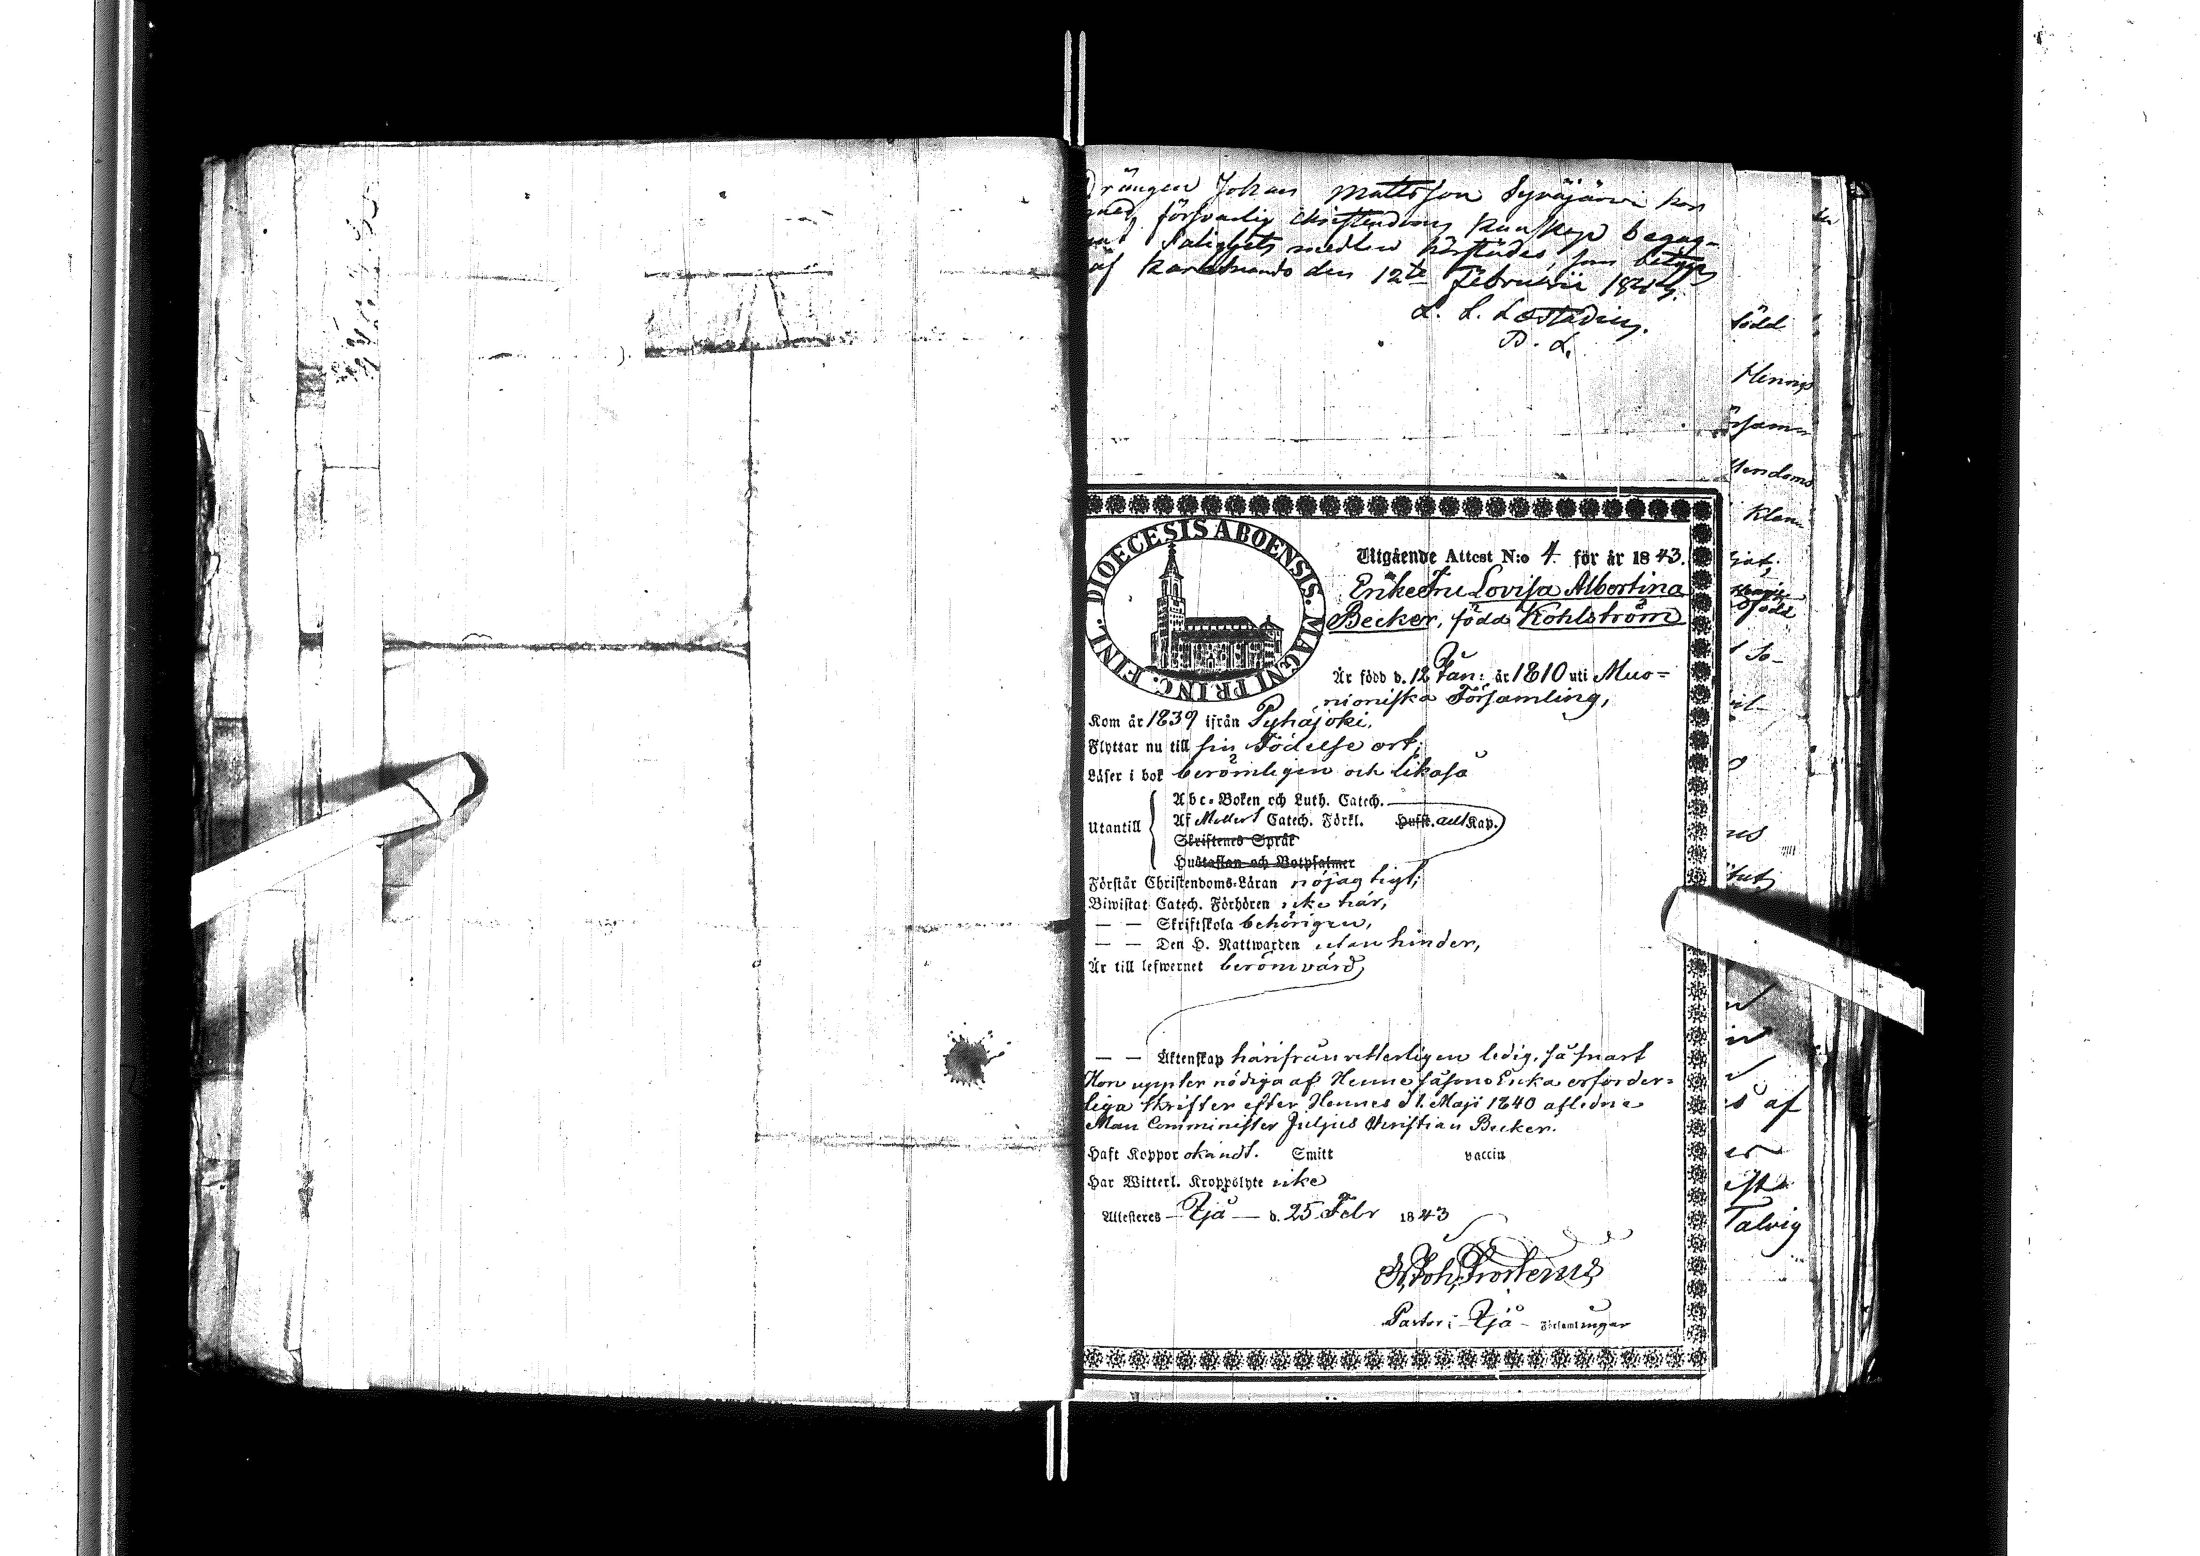 Drängen Johan Mattsson Syväjärvi har
med försvarlig Christendoms kunskap begag-
nat Salighets medlen härstädes, som betygas
af Karesuando den 12te Februarii 1844.
L. L. Læstadius.
P. L.
DIOECESIS ABOENSIS. MAGNI PRINC. FINL.
Utgående Attest N:o 4. för år 1843.
Enkefru Lovisa Albertina
Becker, född Kohlström
Är född d. 12 Jan: år 1810 uti Muo=
nioniska Församling,
Kom år 1839 ifrån Pyhäjoki,
Flyttar nu till sin Födelse ort,
Läser i bok berömligen och likaså
Utantill
Abc-Boken och Luth. Catech.
Af Catech. Förkl. Husst. allt Kap.
Skriftenes Språk
Hustaflan och Botpsalmer
Förstår Christendoms-Läran nöjagtigt,
Biwistat Catech. Förhören icke här,
— — Skriftskola behörigen,
— — Den H. Nattwarden utan hinder,
Är till lefwernet berömvärd,
— — Äktenskap härifrån vetterligen ledig, så snart
Hon uppter nödiga af Henne såsom Enka erforder=
liga Skrifter efter Hennes d 1. Maji 1840 aflidne
Man Comminister Juljus Christian Becker.
Haft Koppor okändt. Smitt vaccin
Har Witterl. Kroppslyte icke
Attesteres — Ijå — d. 25 Febr 1843
Joh. Frosterus
Pastor i — Ijå — Församlingar
född
Talvig